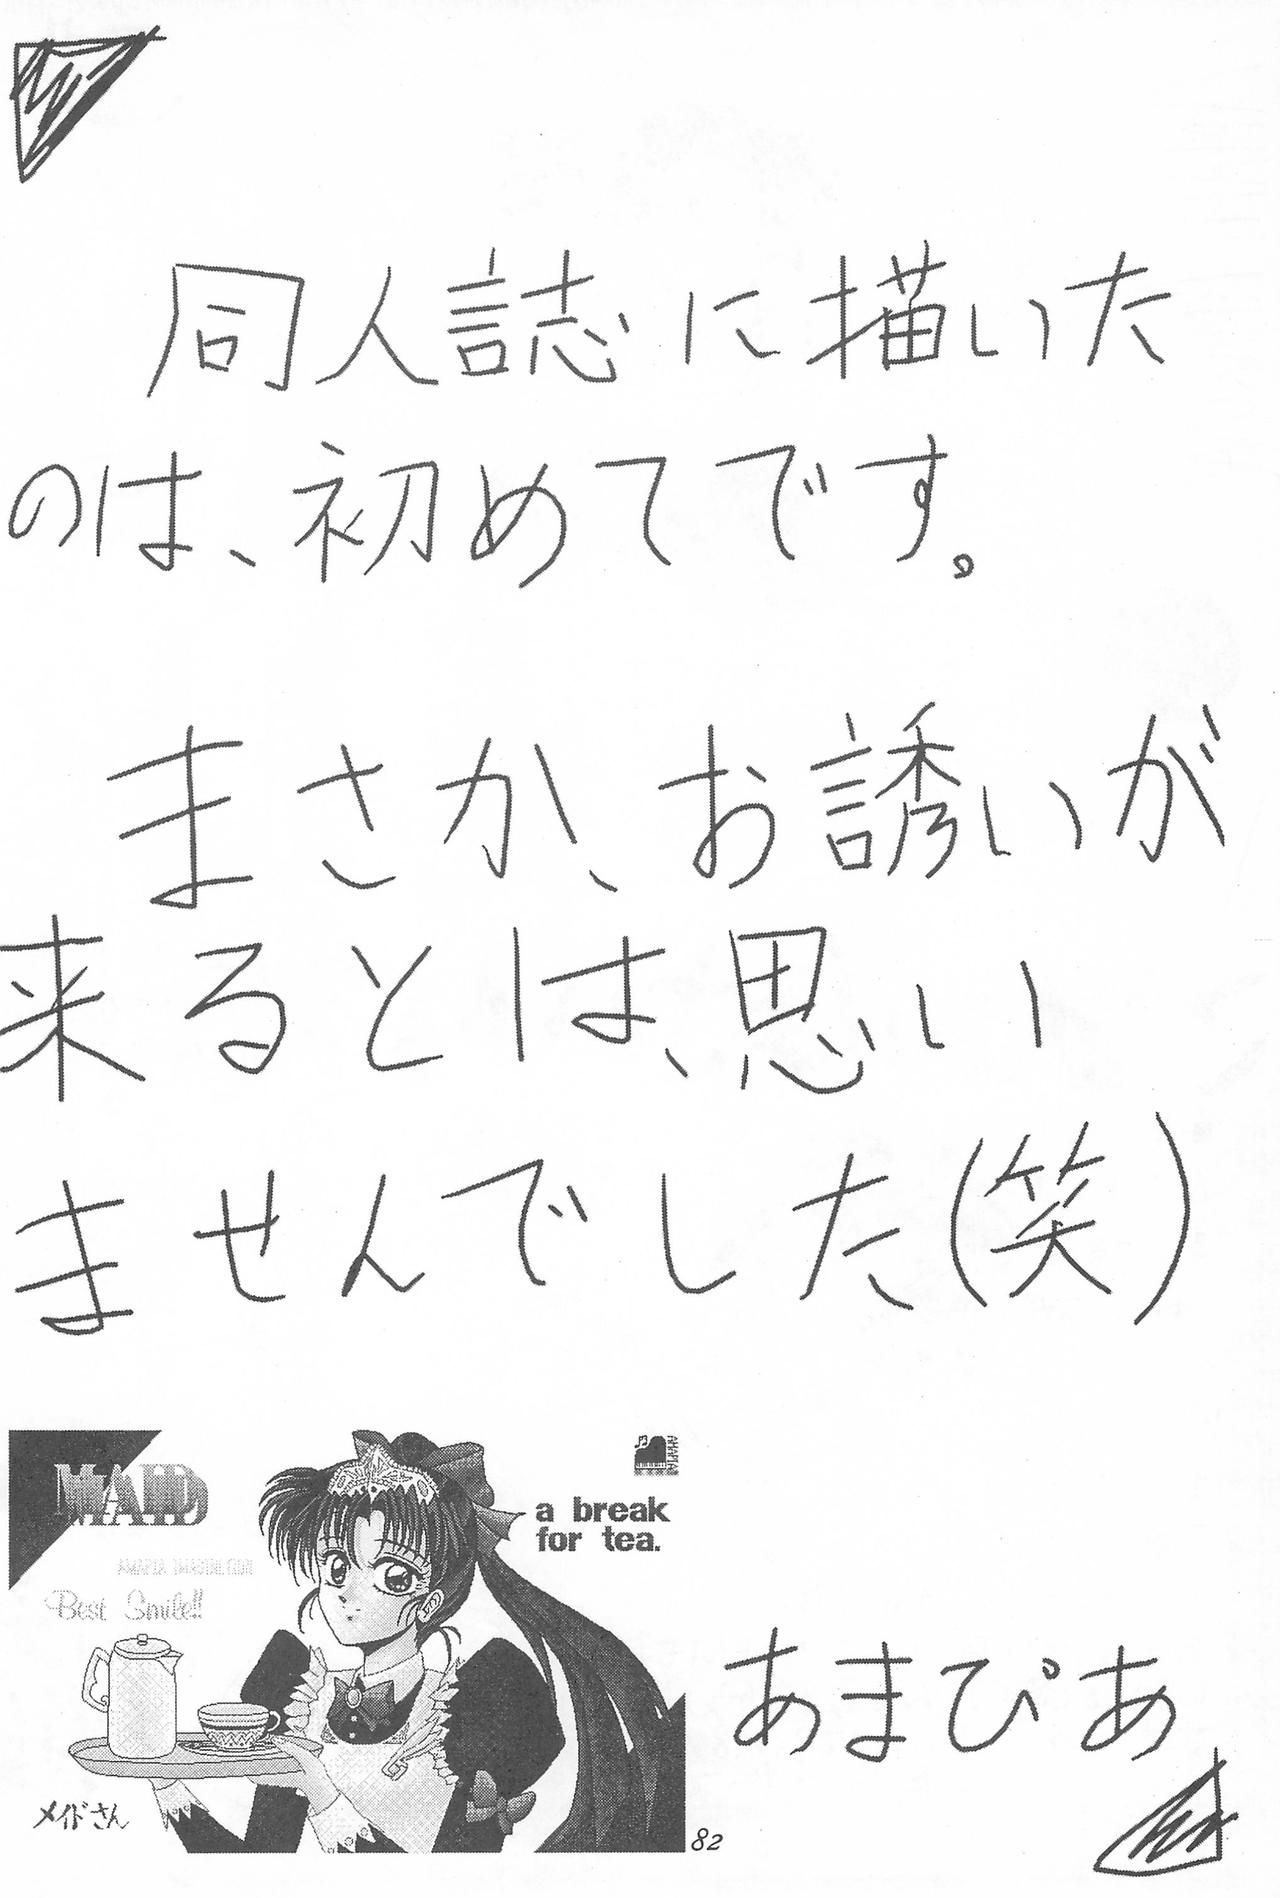 同人誌に描いた
のは、初めてです。
まさか、お誘いが
来るとは、思い
ませんでした(笑)
MAID
AMAPIA
a break
for tea.
Best Smile!!
メイドさん
あまぴあ
82